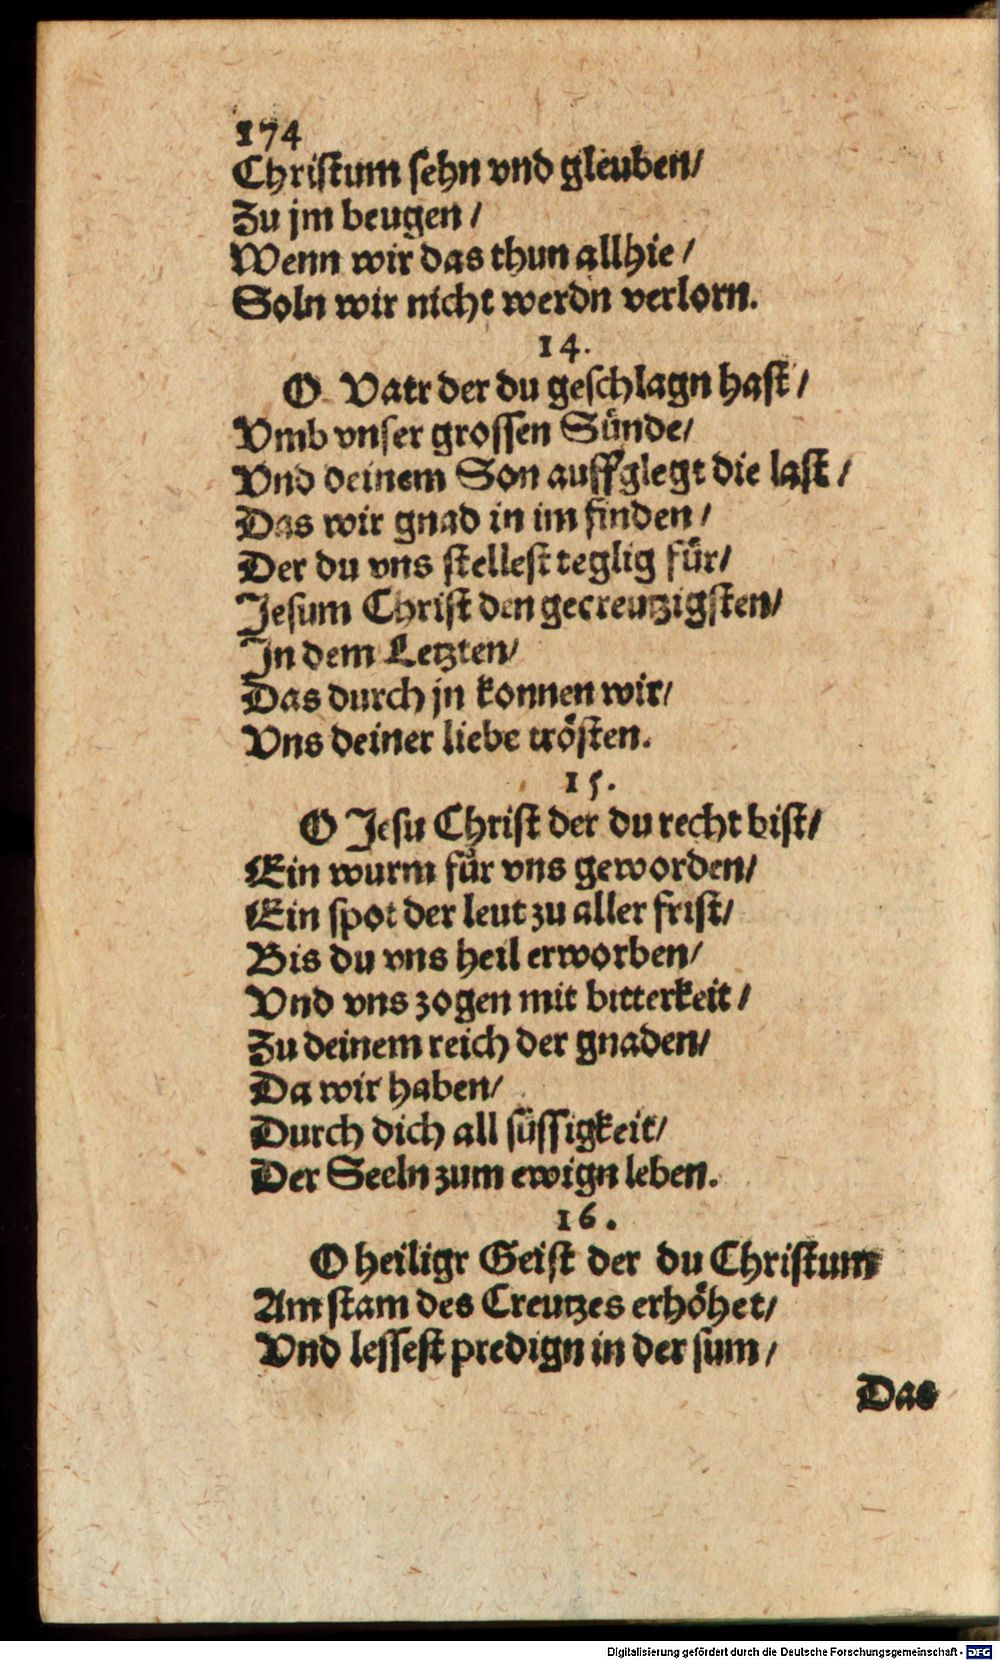 174
Christum sehn vnd gleuben/
Zu jm beugen/
Wenn wir das thun allhie/
Soln wir nicht werdn verlorn.
14.
O Vatr der du geschlagn hast/
Vmb vnser grossen Sünde/
Vnd deinem Son auffglegt die last/
Das wir gnad in im finden/
Der du vns stellest teglig für/
Jesum Christ den gecreutzigsten/
In dem Letzten/
Das durch jn konnen wir/
Vns deiner liebe trösten.
15.
O Jesu Christ der du recht bist/
Ein wurm für vns geworden/
Ein spot der leut zu aller frist/
Bis du vns heil erworben/
Vnd vns zogen mit bitterkeit/
Zu deinem reich der gnaden/
Da wir haben/
Durch dich all süssigkeit/
Der Seeln zum ewign leben.
16.
O heiligr Geist der du Christum
Am stam des Creutzes erhöhet/
Vnd lessest predign in der sum/
Das
Digitalisierung gefördert durch die Deutsche Forschungsgemeinschaft - DFG